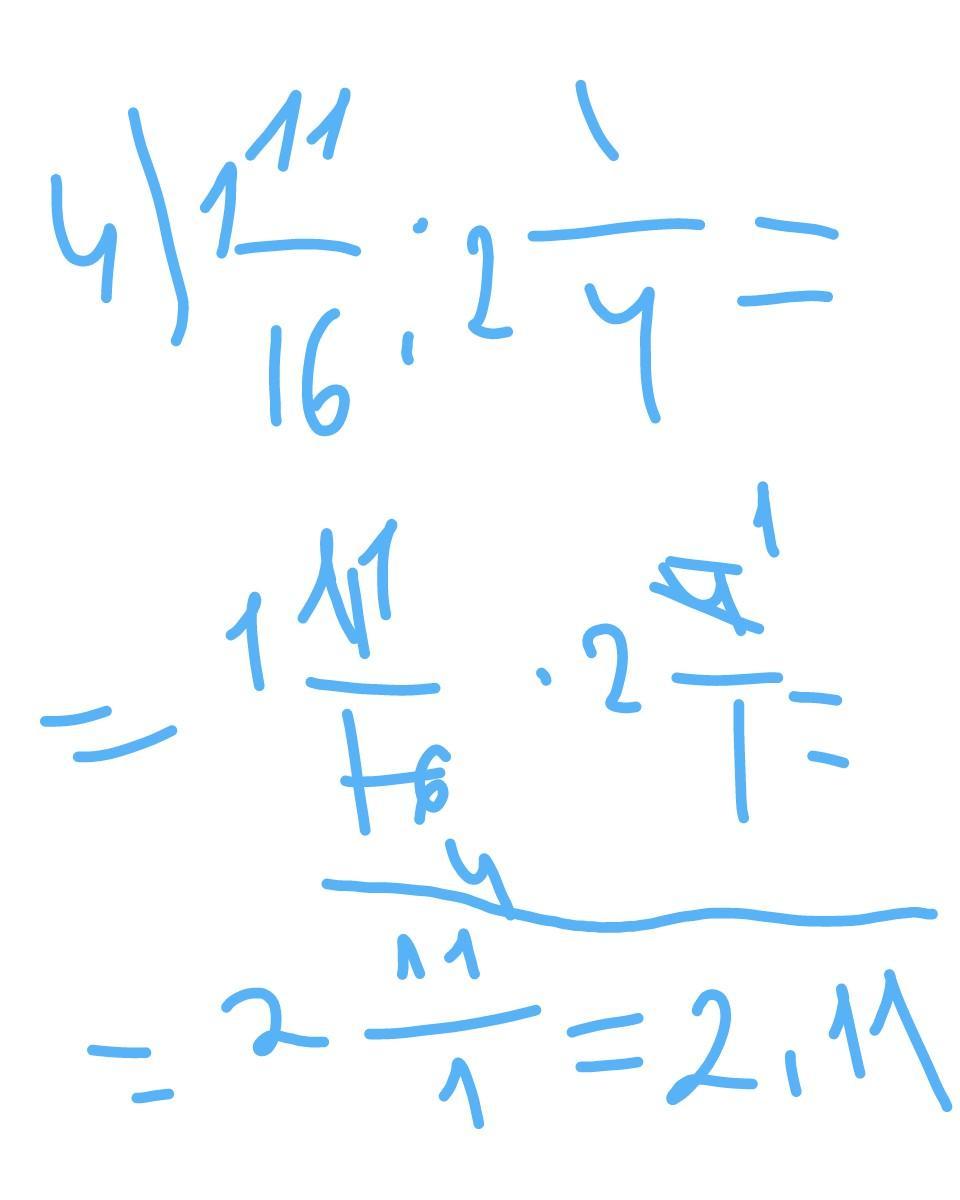 4) 1 11/16 : 2 1/4 =
= 1 11/16 4 · 2 4 1/1 =
= 2 11/1 = 2,11